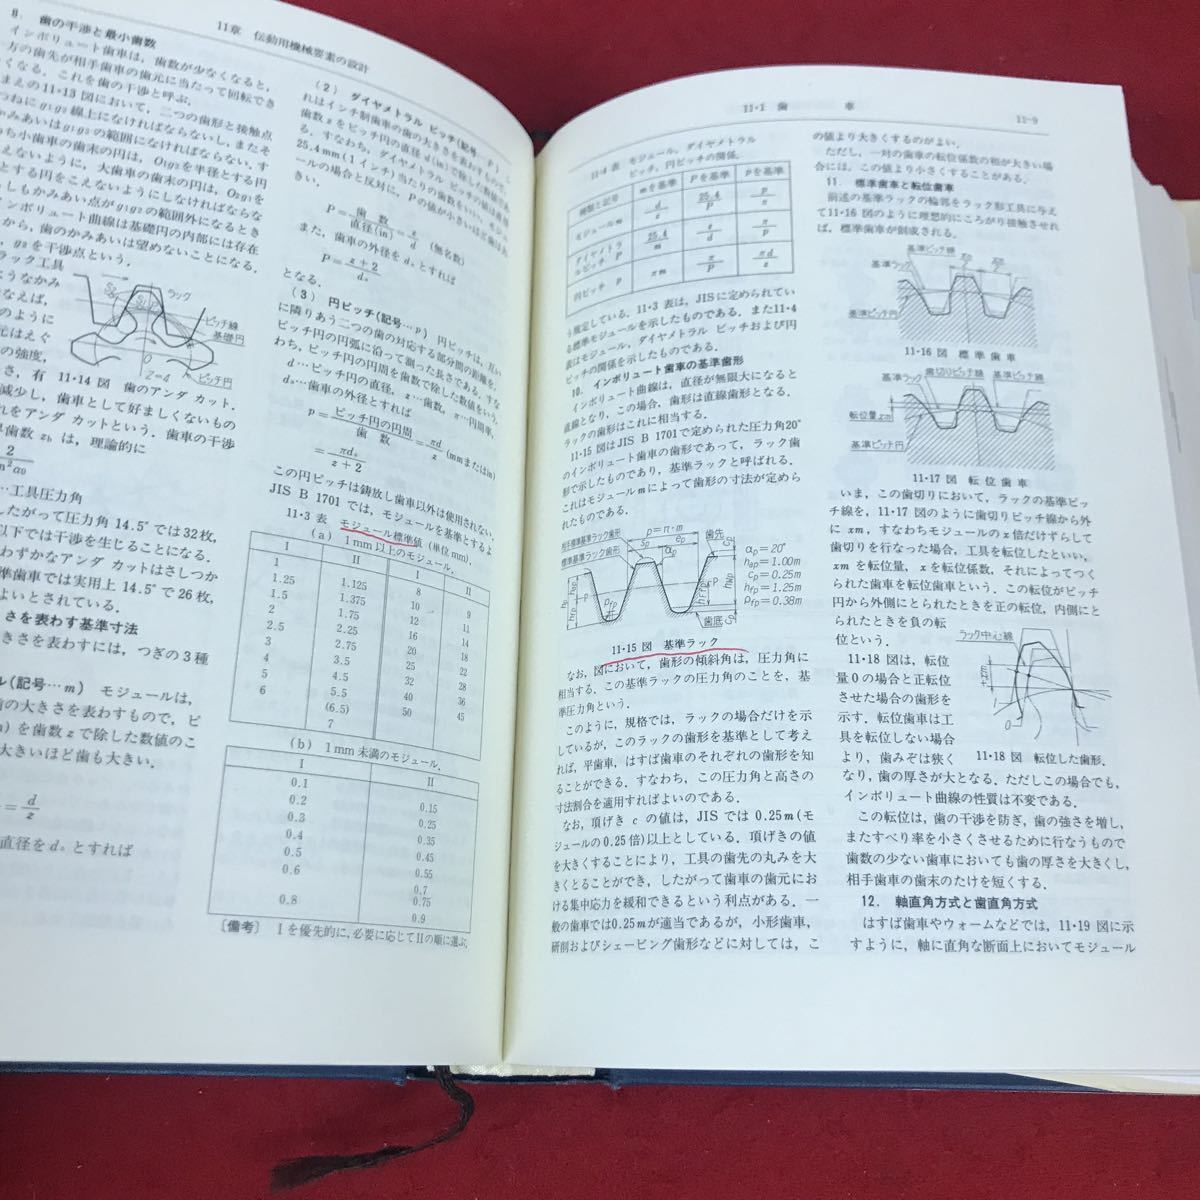 11章　伝動用機械要素の設計
8. 歯の干渉と最小歯数
インボリュート歯車は，歯数が少なくなると，
方の歯先が相手歯車の歯元に当たって回転でき
くなる．これを歯の干渉と呼ぶ．
まえの11・13 図において，二つの歯形と接触点
つねにg₁g₂ 線上になければならないし，またそ
かみあいはg₁g₂の範囲になければならない．す
わち小歯車の歯末の円は，O₁g₂を半径とする円
えないように，大歯車の歯末の円は，O₂g₁を
とする円をこえないようにしなければならな
しもかみあい点がg₁g₂の範囲外になるとき
ンボリュート曲線は基礎円の内部には存在
から，歯のかみあいは望めないことになる．
，g₂を干渉点という．
ラック工具
ようなかみ
なえば，
のように
元はえぐ
の強度，
ラック
ピッチ線
基礎円
ピッチ円
Z=4
さ，有　11・14 図　歯のアンダ カット．
減少し，歯車として好ましくないもの
れをアンダ カットという．歯車の干渉
具歯数 は，理論的に
…工具圧力角
したがって圧力角 14.5°では32枚，
以下では干渉を生じることになる．
わずかなアンダ カットはさしつか
準歯車では実用上 14.5°で 26 枚，
よいとされている．
さを表わす基準寸法
きさを表わすには，つぎの 3 種
ル(記号…m)　モジュールは，
歯の大きさを表わすもので，ピ
を歯数 z で除した数値のこ
大きいほど歯も大きい．
= d/z
直径をdₒとすれば
(2)　ダイヤメトラル ピッチ(記号…P)
れはインチ制歯車の歯の大きさを表わすもので，
歯数 z をピッチ円の直径 d(in)で除した数値であ
る．すなわち，ダイヤメトラル ピッチは直径
25.4mm(1インチ)当たりの歯数をいい，モジュ
ールの場合と反対に，Pの値が小さいほど歯は大
きい．
P = 歯　数/直径(in) = z/d　(無名数)
また，歯車の外径を dₒ とすれば
P = z+2/dₒ
となる．
(3)　円ピッチ(記号…p)　円ピッチは，互い
に隣りあう二つの歯の対応する部分間の距離を，
ピッチ円の円弧に沿って測った長さである．すな
わち，ピッチ円の円周を歯数で除した数値をいう．
d…ピッチ円の直径，z…歯数，π…円周率，
dₒ…歯車の外径とすれば
p = ピッチ円の円周/歯　数 = πd/z (mmまたはin)
= πdₒ/z+2
この円ピッチは鋳放し歯車以外は使用されない．
JIS B 1701 では，モジュールを基準とするよ
11・3 表　モジュール標準値(単位mm)．
(a)　1 mm 以上のモジュール．
I　II　I　II
1　1.125　8　9
1.25　1.375　10　11
1.5　1.75　12　14
2　2.25　16　18
2.5　2.75　20　22
3　3.5　25　28
4　4.5　32　36
5　5.5　40　45
6　(6.5)　50
7
(b)　1 mm 未満のモジュール．
I　II
0.1　0.15
0.2　0.25
0.3　0.35
0.4　0.45
0.5　0.55
0.6　0.7
0.8　0.75
0.9
〔備考〕　I を優先的に，必要に応じてIIの順に選ぶ．
11・1　歯　車
11-9
11・4 表　モジュール，ダイヤメトラル
ピッチ，円ピッチの関係．
種類と記号　mを基準　Pを基準　pを基準
モジュールm　d/z　25.4/P　p/π
ダイヤメトラルピッチ P　25.4/m　z/d　π/p
円ピッチ p　πm　π/P　πd/z
う規定している．11・3 表は，JISに定められてい
る標準モジュールを示したものである．また11・4
表はモジュール，ダイヤメトラル ピッチおよび円
ピッチの関係を示したものである．
10.　インボリュート歯車の基準歯形
インボリュート曲線は，直径が無限大になると
直線となり，この場合，歯形は直線歯形となる．
ラックの歯形はこれに相当する．
11・15 図はJIS B 1701で定められた圧力角20°
のインボリュート歯車の歯形であって，ラック歯
形で示したものであり，基準ラックと呼ばれる．
これはモジュールmによって歯形の寸法が定めら
れたものである．
相手標準基準ラック歯形
標準基準ラック歯形
p=π・m
歯先
歯底
αp=20°
hap=1.00m
cp=0.25m
hfp=1.25m
ρfp=0.38m
11・15 図　基準ラック
なお，図において，歯形の傾斜角は，圧力角に
相当する．この基準ラックの圧力角のことを，基
準圧力角という．
このように，規格では，ラックの場合だけを示
しているが，このラックの歯形を基準として考え
れば，平歯車，はすば歯車のそれぞれの歯形を知
ることができる．すなわち，この圧力角と高さの
寸法割合を適用すればよいのである．
なお，頂げき c の値は，JIS では 0.25 m (モ
ジュールの 0.25 倍)以上としている．頂げきの値
を大きくすることにより，工具の歯先の丸みを大
きくとることができ，したがって歯車の歯元にお
ける集中応力を緩和できるという利点がある．一
般の歯車では0.25 mが適当であるが，小形歯車，
研削およびシェービング歯形などに対しては，こ
の値より大きくするのがよい．
ただし，一対の歯車の転位係数の和が大きい場
合には，この値より小さくすることがある．
11.　標準歯車と転位歯車
前述の基準ラックの輪郭をラック形工具に与え
て11・16 図のように理想的にころがり接触させれ
ば，標準歯車が創成される．
基準ピッチ線
基準ラック
基準ピッチ円
11・16 図　標 準 歯 車
歯切りピッチ線
基準ラック
基準ピッチ線
転位量xm
基準ピッチ円
11・17 図　転 位 歯 車
いま，この歯切りにおいて，ラックの基準ピッ
チ線を，11・17 図のように歯切りピッチ線から外
に xm，すなわちモジュールの x 倍だけずらして
歯切りを行なった場合，工具を転位したといい，
xm を転位量，x を転位係数，それによってつく
られた歯車を転位歯車という．この転位がピッチ
円から外側にとられたときを正の転位，内側にと
られたときを負の転
位という．
11・18 図は，転位
量 0 の場合と正転位
させた場合の歯形を
示す．転位歯車は工
具を転位しない場合
より，歯みぞは狭く
ラック中心線
11・18 図　転位した歯形．
なり，歯の厚さが大となる．ただしこの場合でも，
インボリュート曲線の性質は不変である．
この転位は，歯の干渉を防ぎ，歯の強さを増し，
またすべり率を小さくさせるために行なうもので
歯数の少ない歯車においても歯の厚さを大きくし，
相手歯車の歯末のたけを短くする．
12.　軸直角方式と歯直角方式
はすば歯車やウォームなどでは，11・19 図に示
すように，軸に直角な断面上においてモジュール